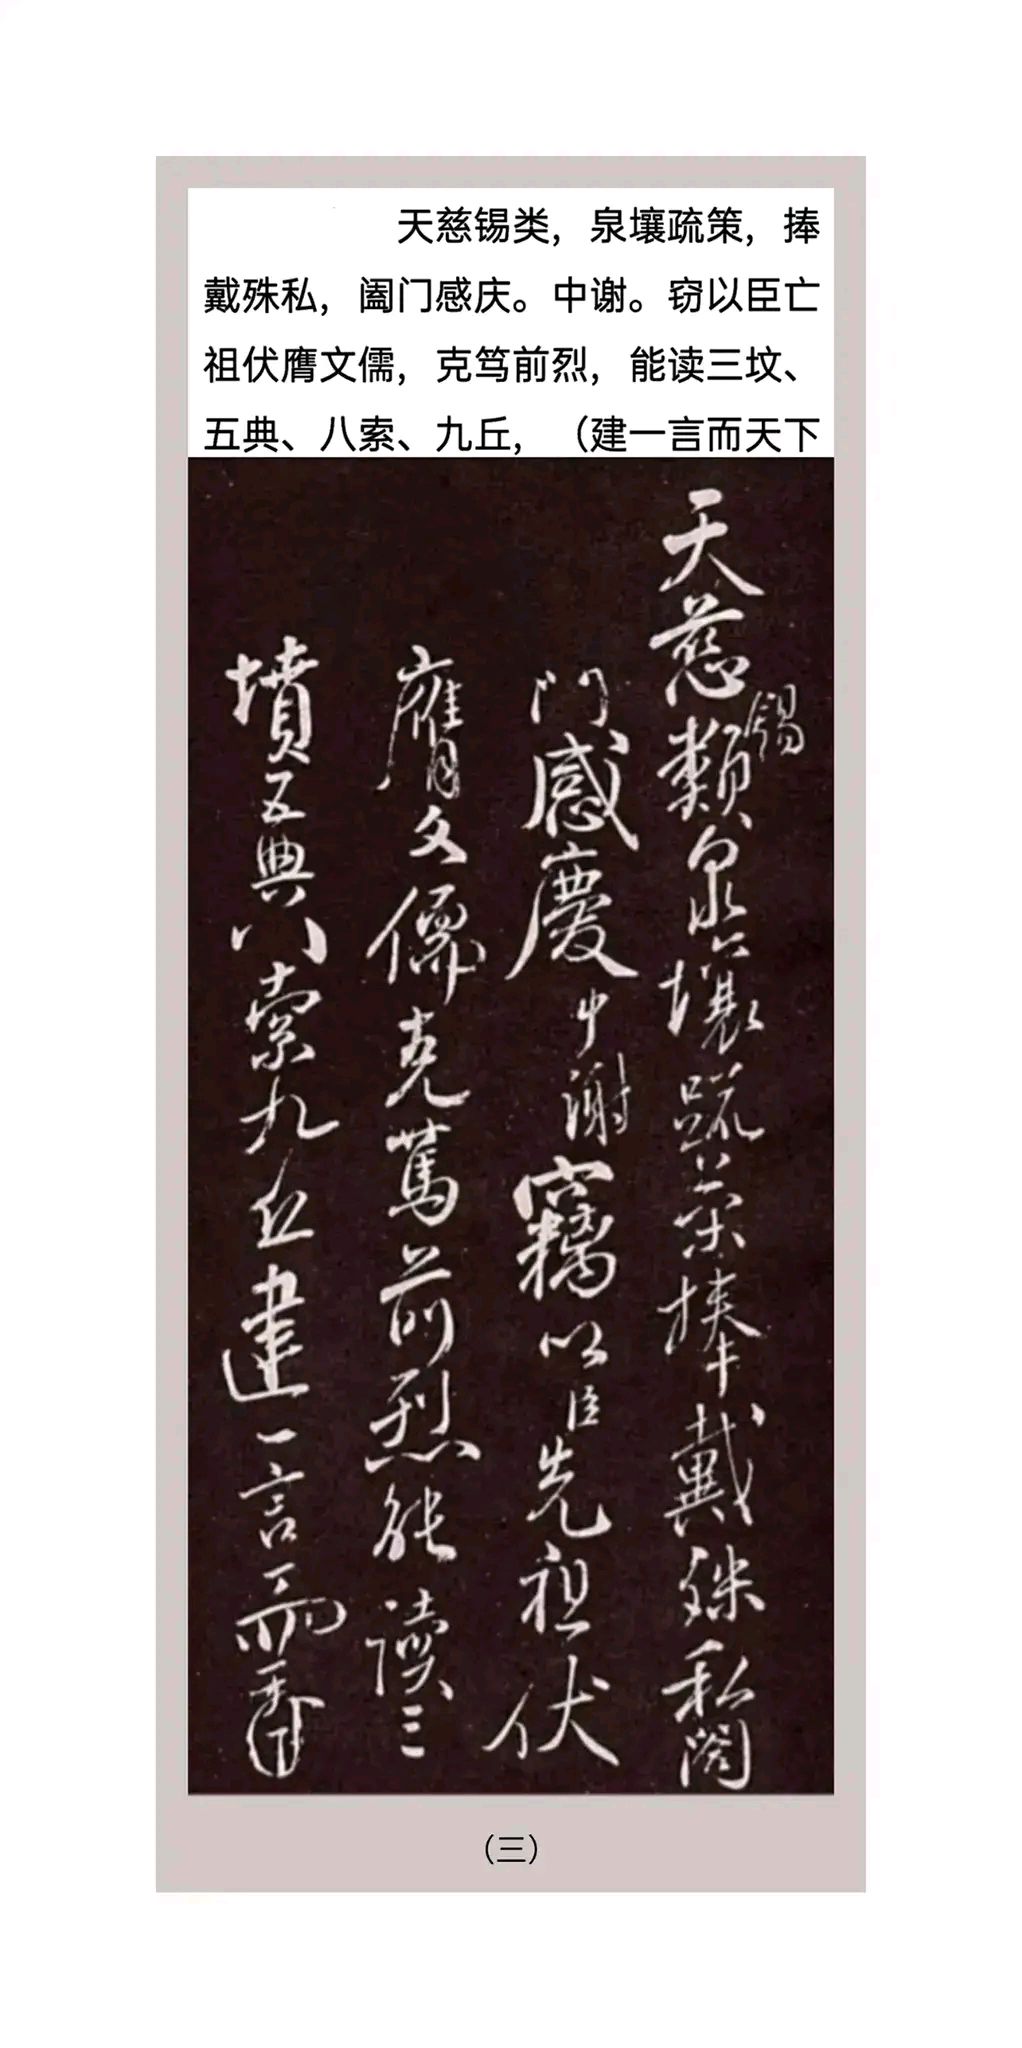 天慈锡类，泉壤疏策，捧
戴殊私，阖门感庆。中谢。窃以臣亡
祖伏膺文儒，克笃前烈，能读三坟、
五典、八索、九丘，（建一言而天下
天慈錫類泉壤疏策捧戴殊私闔
門感慶中謝竊以臣先祖伏
膺文儒克篤前烈能讀三
墳五典八索九丘建一言而
（三）